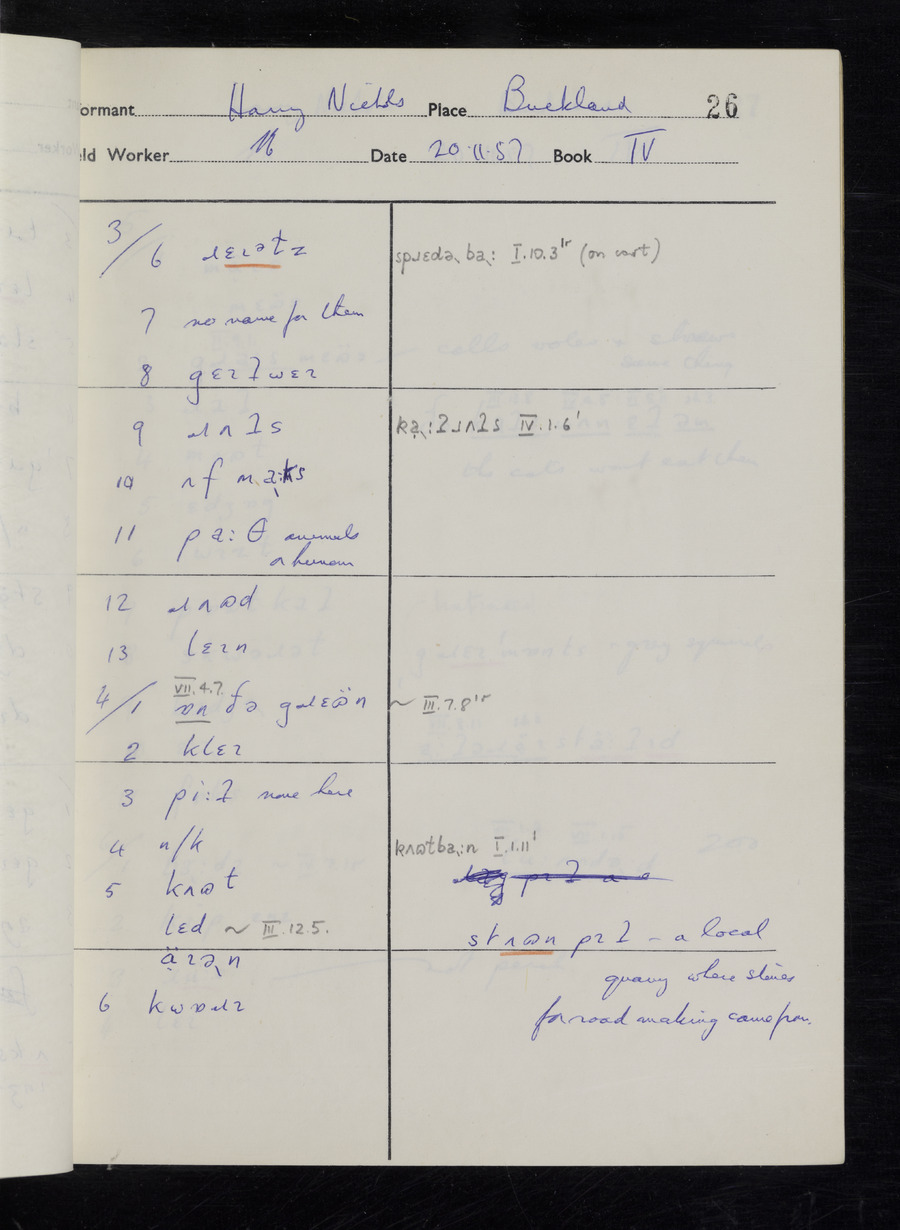 ormant Harry Nichols Place Buckland 26
ld Worker Date 20.11.57 Book IV
3/6 ɹɛɪətz sprɛdə, ba: I.10.3 (on cart)
7 no name for them
8 gɛɪtwɛɪ
9 ɹʌts ka:tɹʌts IV.1.6
10 ʌf
11 pa:θ animals
or human
12 ɹʌɷd
13 lɛɪn
VII.4.7.
4/1 ɒn ðə gɹɛɷ̈n ~ III.7.8
2 klɛɪ
3 pi:t none here
4 n/k knɷtba:n I.1.11
5 kʌɷt
lɛd ~ III.12.5. stʌɷn pɪt - a local
äɪən quarry where stones
6 kwɒɹɪ for road making came from.